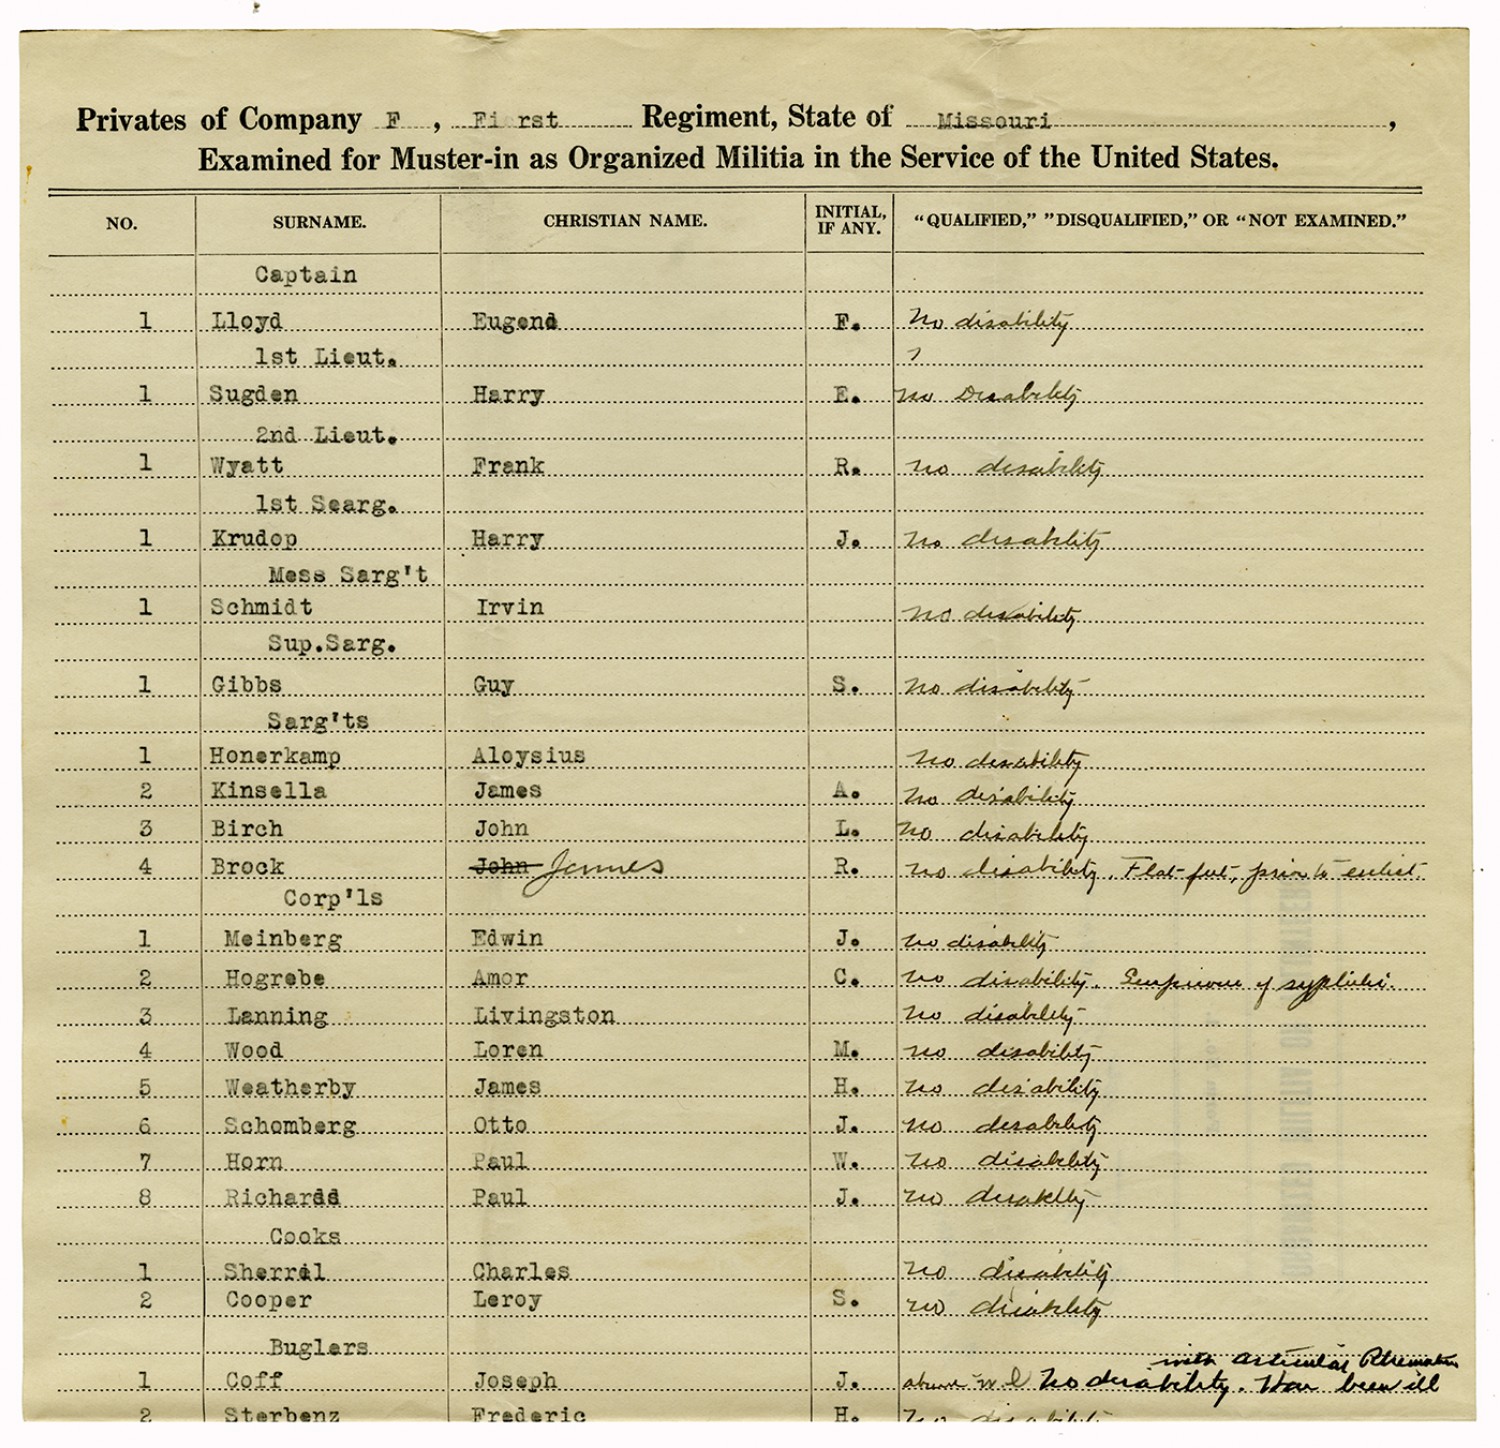 Privates of Company F , First Regiment, State of Missouri ,
Examined for Muster-in as Organized Militia in the Service of the United States.
NO. SURNAME. CHRISTIAN NAME. INITIAL, IF ANY. “QUALIFIED,” ”DISQUALIFIED,” OR “NOT EXAMINED.”
Captain
1 Lloyd Eugene F. No disability
1st Lieut. ?
1 Sugden Harry E. no Disability
2nd Lieut.
1 Wyatt Frank R. no disability
1st Searg.
1 Krudop Harry J. No disability
Mess Sarg't
1 Schmidt Irvin no disability
Sup.Sarg.
1 Gibbs Guy S. No disability
Sarg'ts
1 Honerkamp Aloysius No disability
2 Kinsella James A. No disability
3 Birch John L. No disability
4 Brock John James R. no disability. Flat-feet, prior to enlist.
Corp'ls
1 Meinberg Edwin J. no disability
2 Hogrebe Amor C. no disability. Suspicious of syphilis.
3 Lanning Livingston no disability
4 Wood Loren M. no disability
5 Weatherby James H. no disability
6 Schomberg Otto J. no disability
7 Horn Paul W. no disability
8 Richards Paul J. no disability
Cooks
1 Sherril Charles no disability
2 Cooper Leroy S. no disability
Buglers
with articular Rheumatism
1 Coff Joseph J. No disability. Has been ill
2 Sterbenz Frederic H. No disability